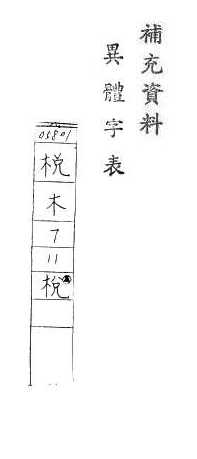 補充資料
異體字表
05801
梲
木
7
11
棁